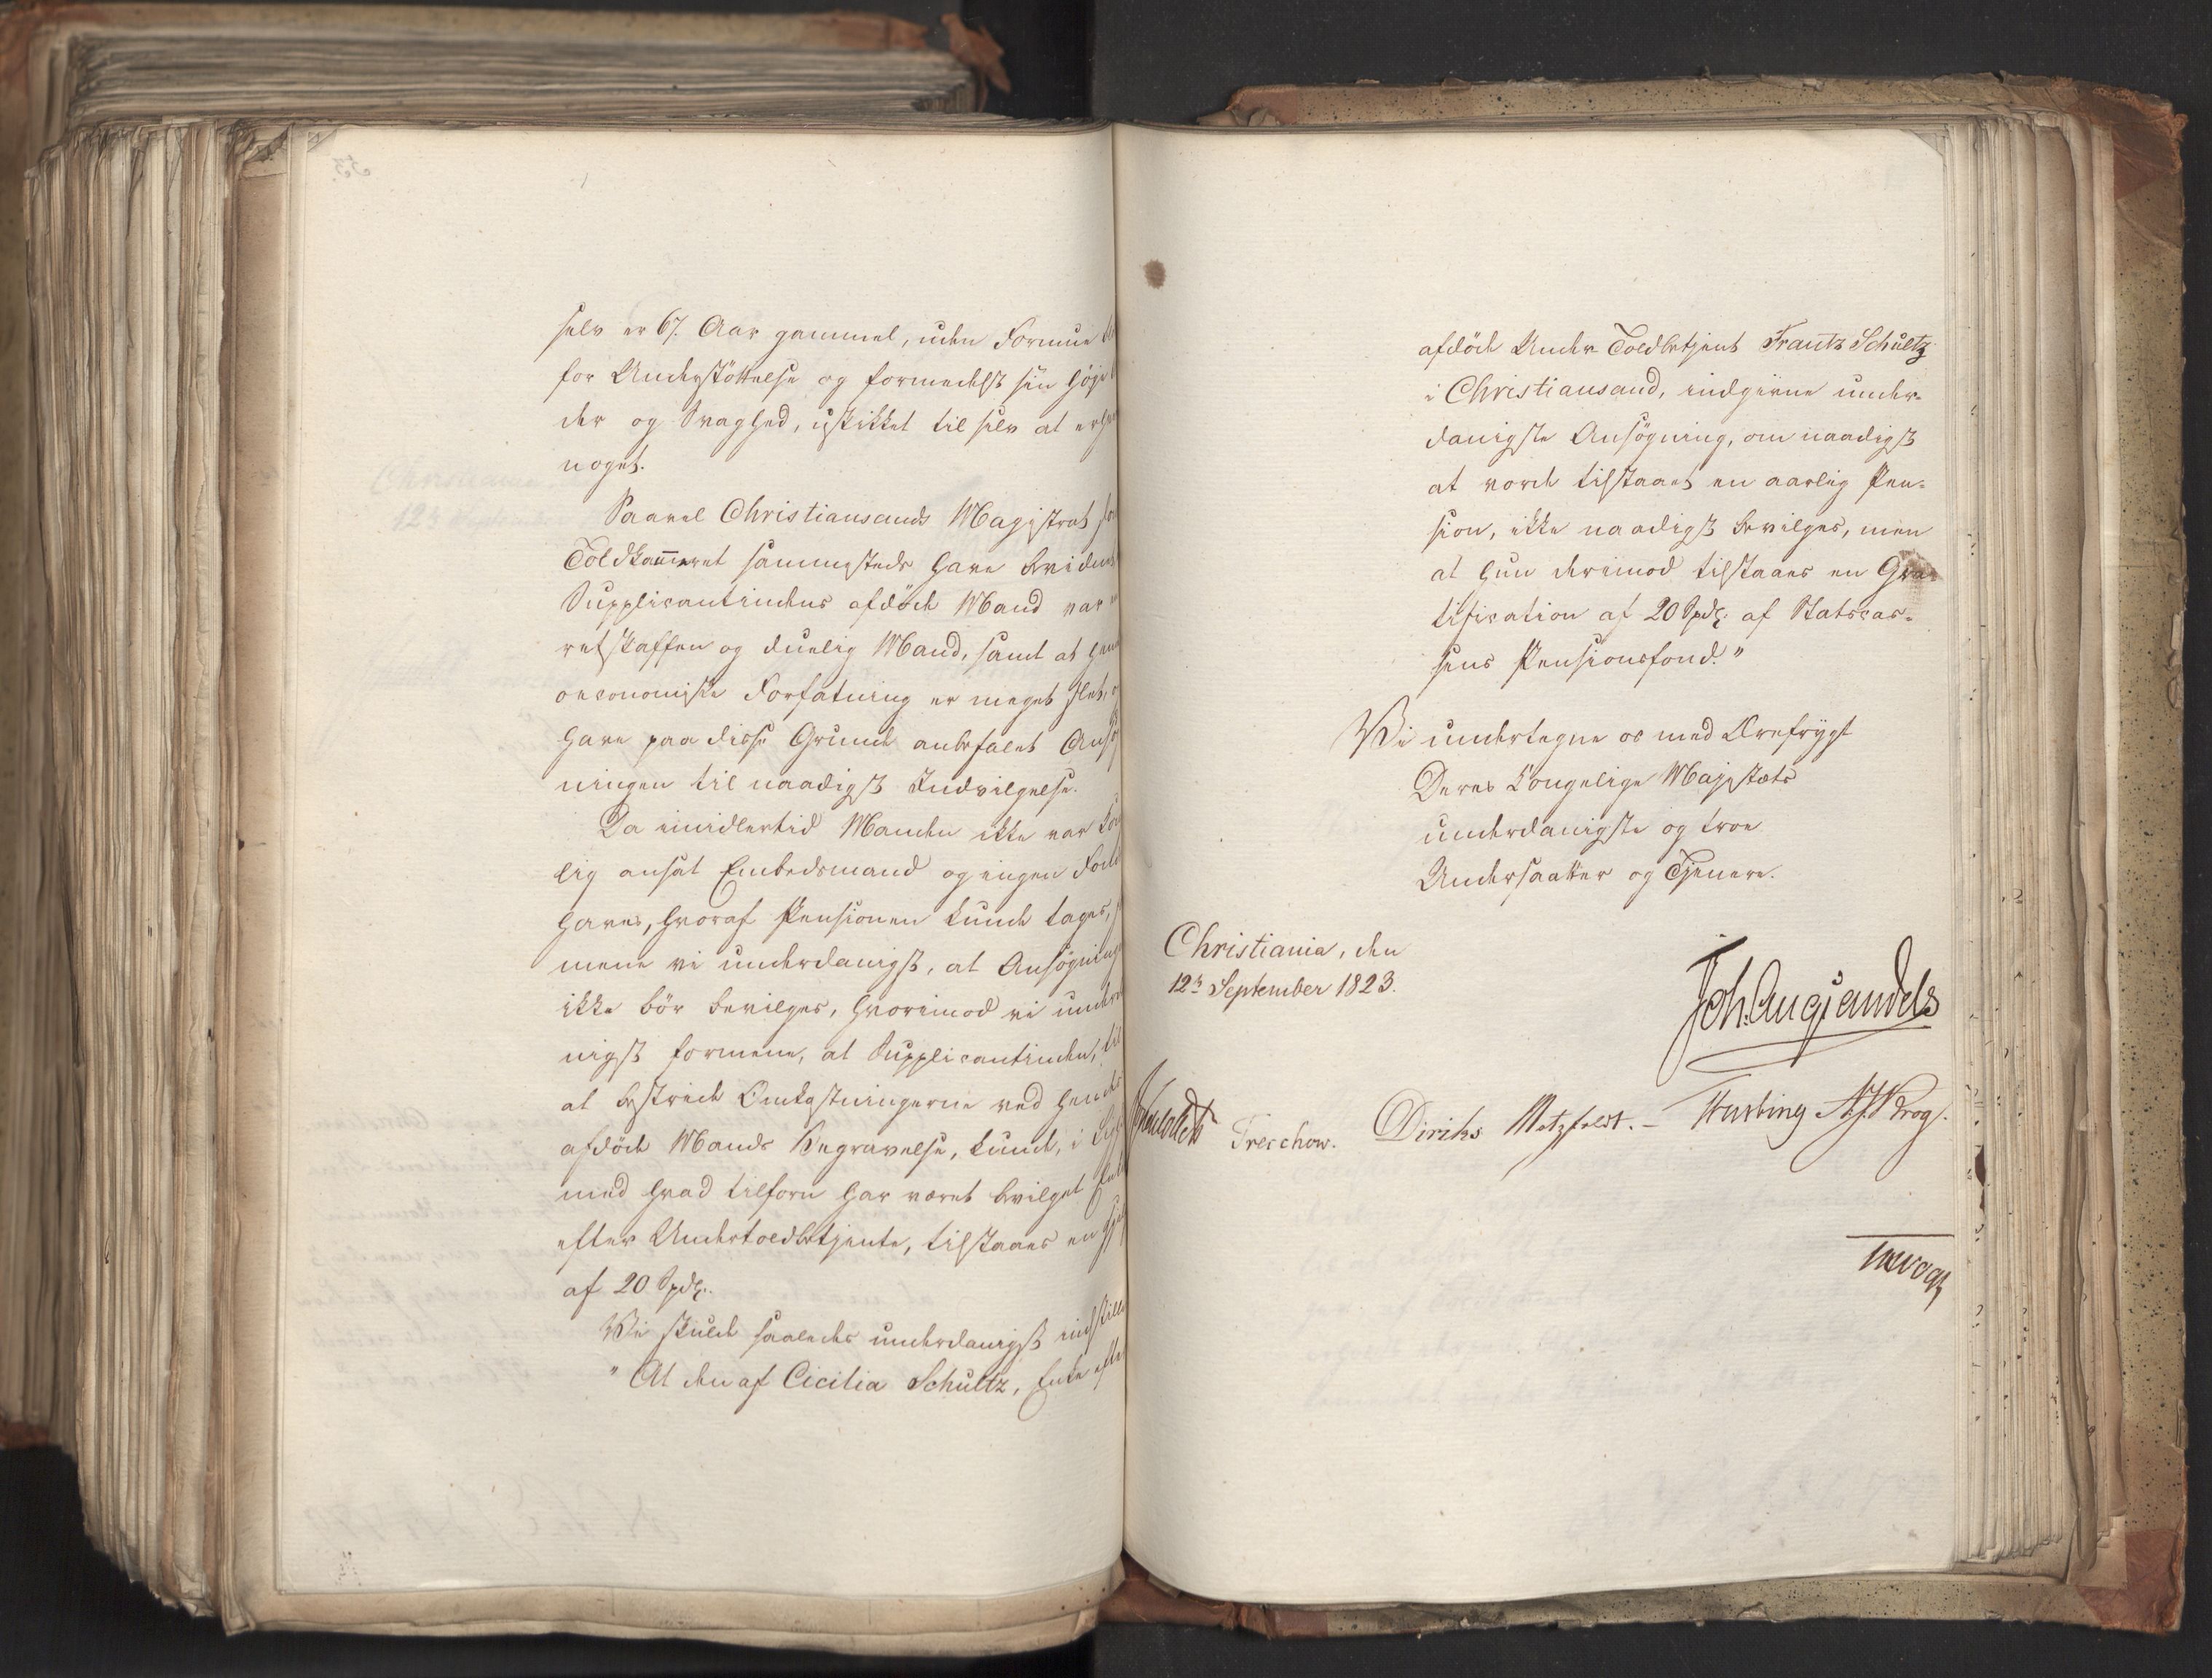 selv er 67. Aar gammel, uden Formue
for Understöttelse og formedelst sin höje
der og Svaghed, uskikket til selv at
noget.
Saavel Christiansands Magistrat
Toldkam̄eret sammesteds have bevidnet
Supplicantindens afdöde Mand var
retskaffen og duelig Mand, samt at
oeconomiske Forfatning er meget slet,
have paa disse Grunde anbefalet Ansög
ningen til naadigst Indvilgelse.
Da imidlertid Manden ikke var
lig ansat Embedsmand og ingen
haves, hvoraf Pensionen kunde tages,
mene vi underdanigst, at Ansögning
ikke bör bevilges, hvorimod vi underda
nigst formene, at Supplicantinden, til
at bestride Omkostningerne ved hendes
afdöde Mands Begravelse, kunde, i
med hvad tilforn har været bevilget
efter Undertoldbetjente, tilstaaes en
af 20 Spdl.
Vi skulde saaledes underdanigst indstille
"At den af Cicilia Schultz, Enke efter
afdöde Under Toldbetjent Frantz Schultz
i Christiansand, indgivne under-
danigste Ansögning, om naadigst
at vorde tilstaaet en aarlig Pen-
sion, ikke naadigst bevilges, men
at hun derimod tilstaaes en Gra-
tification af 20 Spdl. af Statscas-
sens Pensionsfond."
Vi undertegne os med Ærefrygt
Deres Kongelige Majestæts
underdanigste og troe
Undersaatter og Tjenere.
Christiania, den
12t September 1823.
Joh. Aug Sandels
Treschow. Diriks Motzfeldt. - Krog.
Vogt